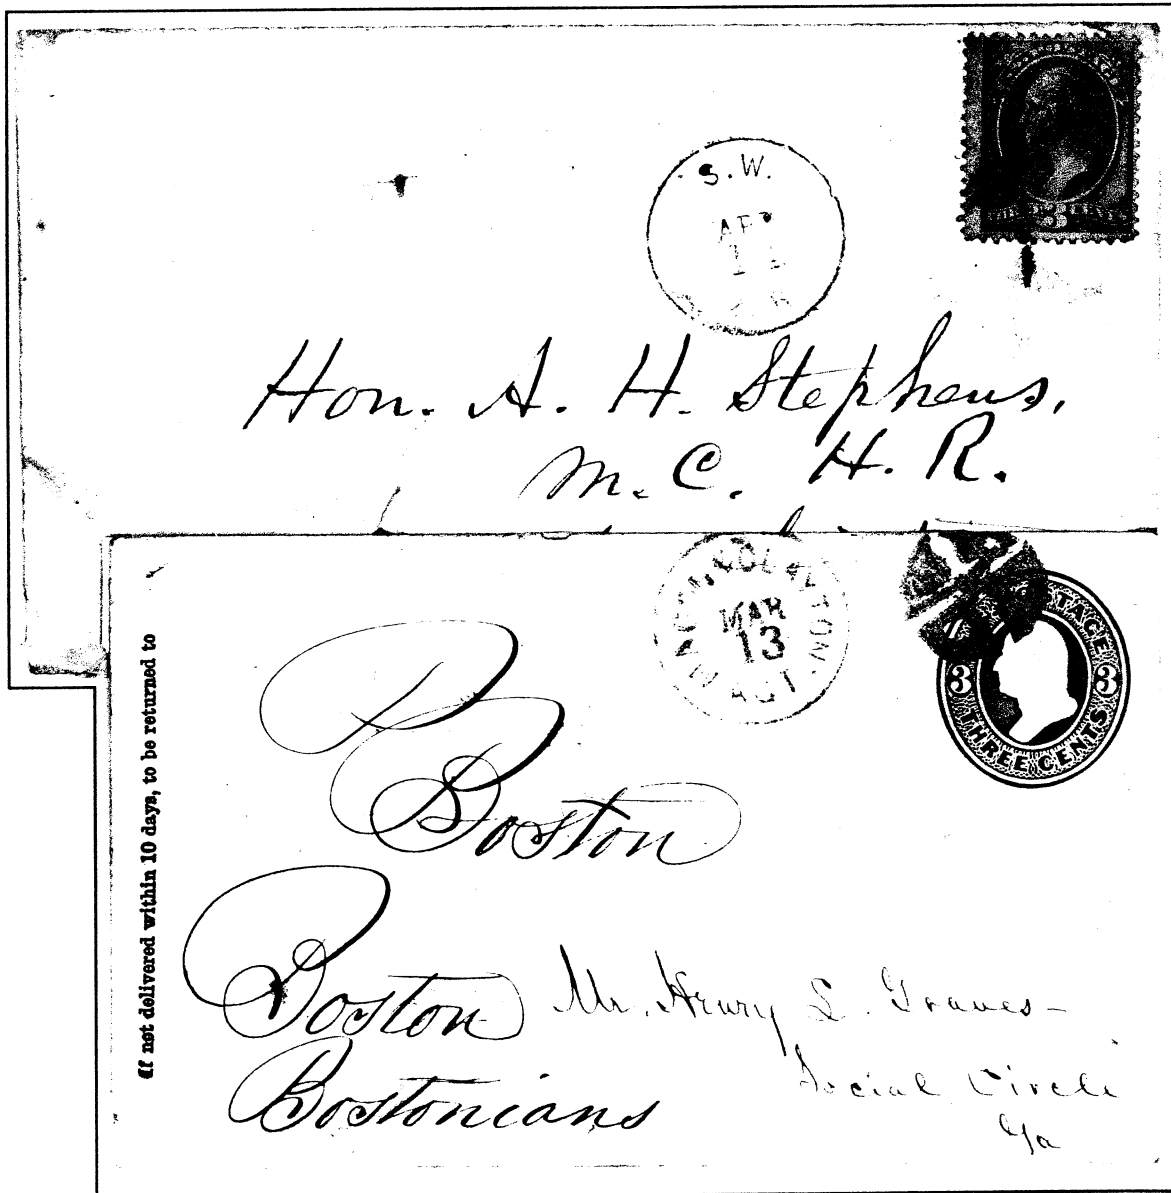 S.W.
APR
11
3
Hon. A. H. Stephens,
M. C. H. R.
MAR
13
AGT.
POSTAGE
3 3
THREE CENTS
If not delivered within 10 days, to be returned to
Boston
Boston
Bostonians
Mr. Henry L. Graves-
Social Circle
Ga